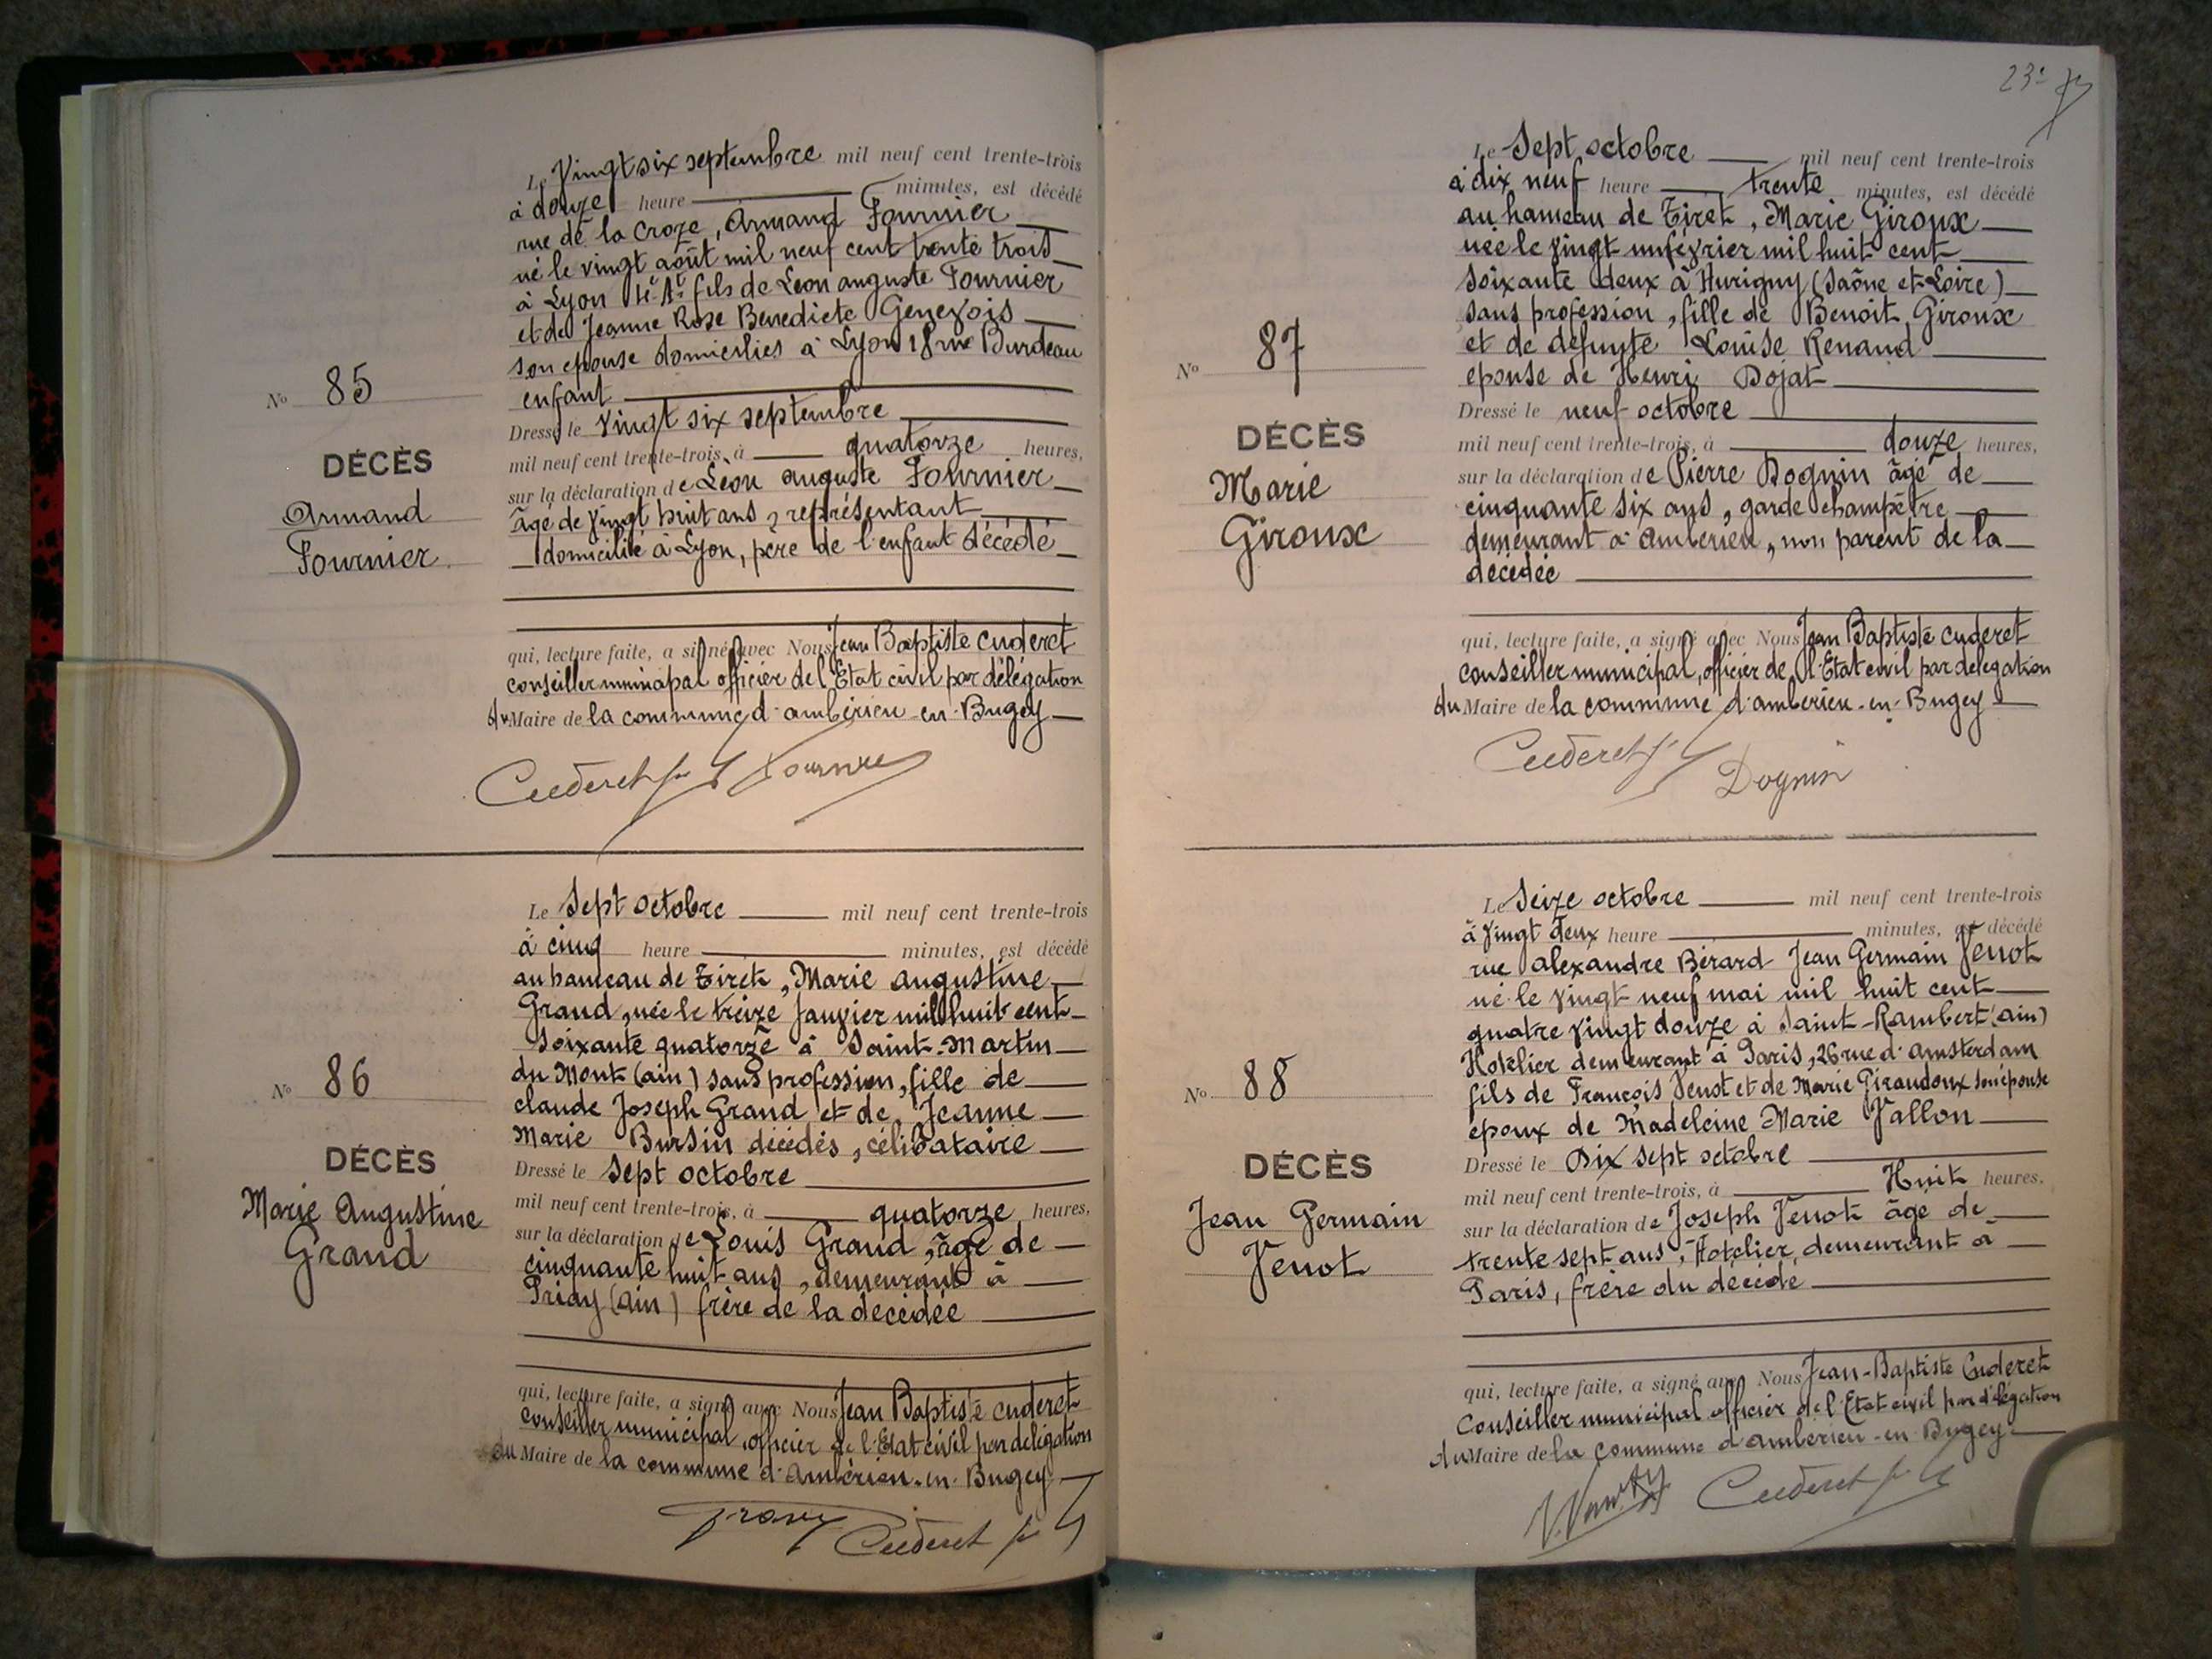 Le Vingt six septembre mil neuf cent trente-trois
à douze heure minutes, est décédé
rue de la Croze, Armand Fournier
né le vingt août mil neuf cent trente trois
à Lyon 4e Ar fils de Léon auguste Fournier
et de Jeanne Rose Benedicte Genevois
son epouse domiciliés à Lyon 18 rue Burdeau
enfant
Dressé le Vingt six septembre
mil neuf cent trente-trois, à quatorze heures,
sur la déclaration de Léon auguste Fournier
âgé de vingt huit ans, représentant
domicilié à Lyon, père de l'enfant décédé
qui, lecture faite, a signé avec Nous Jean Baptiste Cuderet
conseiller municipal officier de l'Etat civil par délégation
du Maire de la commune d'ambérieu-en-Bugey
Cuderet Fournier
No 85
DÉCÈS
Armand
Fournier
Le Sept octobre mil neuf cent trente-trois
à cinq heure minutes, est décédé
au hameau de Tiret, Marie augustine
Grand, née le treize Janvier mil huit cent
soixante quatorze à Saint-Martin
du Mont (ain) sans profession, fille de
claude Joseph Grand et de Jeanne
Marie Bursin décédés, célibataire
Dressé le sept octobre
mil neuf cent trente-trois, à quatorze heures,
sur la déclaration de Louis Grand, âgé de
cinquante huit ans, demeurant à
Priay (ain) frère de la décédée
qui, lecture faite, a signé avec Nous Jean Baptiste cuderet
conseiller municipal, officier de l'Etat civil par délégation
du Maire de la commune d'Ambérieu-en-Bugey
Grand Cuderet
No 86
DÉCÈS
Marie Augustine
Grand
23e
Le Sept octobre mil neuf cent trente-trois
à dix neuf heure trente minutes, est décédé
au hameau de Tiret, Marie Giroux
née le vingt un février mil huit cent
soixante deux à Hurigny (Saône et-Loire)
sans profession, fille de Benoit Giroux
et de defunte Louise Renaud
epouse de Henri Dojat
Dressé le neuf octobre
mil neuf cent trente-trois, à douze heures,
sur la déclaration de Pierre Dognin âgé de
cinquante six ans, garde champêtre
demeurant à ambérieu, non parent de la
décédée
qui, lecture faite, a signé avec Nous Jean Baptiste cuderet
conseiller municipal, officier de l'Etat civil par delegation
du Maire de la commune d'ambérieu-en-Bugey
Cuderet Dognin
No 87
DÉCÈS
Marie
Giroux
Le Seize octobre mil neuf cent trente-trois
à Vingt deux heure minutes, est décédé
rue alexandre Bérard Jean Germain Venot
né le vingt neuf mai mil huit cent
quatre vingt douze à Saint-Rambert (ain)
Hotelier demeurant à Paris, 26 rue d'amsterdam
fils de François Venot et de Marie Giraudoux son épouse
époux de Madeleine Marie Vallon
Dressé le Dix sept octobre
mil neuf cent trente-trois, à Huit heures,
sur la déclaration de Joseph Venot âgé de
trente sept ans, Hotelier, demeurant à
Paris, frère du décédé
qui, lecture faite, a signé avec Nous Jean-Baptiste Cuderet
Conseiller municipal officier de l'Etat civil par délégation
du Maire de la commune d'ambérieu-en-Bugey
Cuderet
No 88
DÉCÈS
Jean Germain
Venot